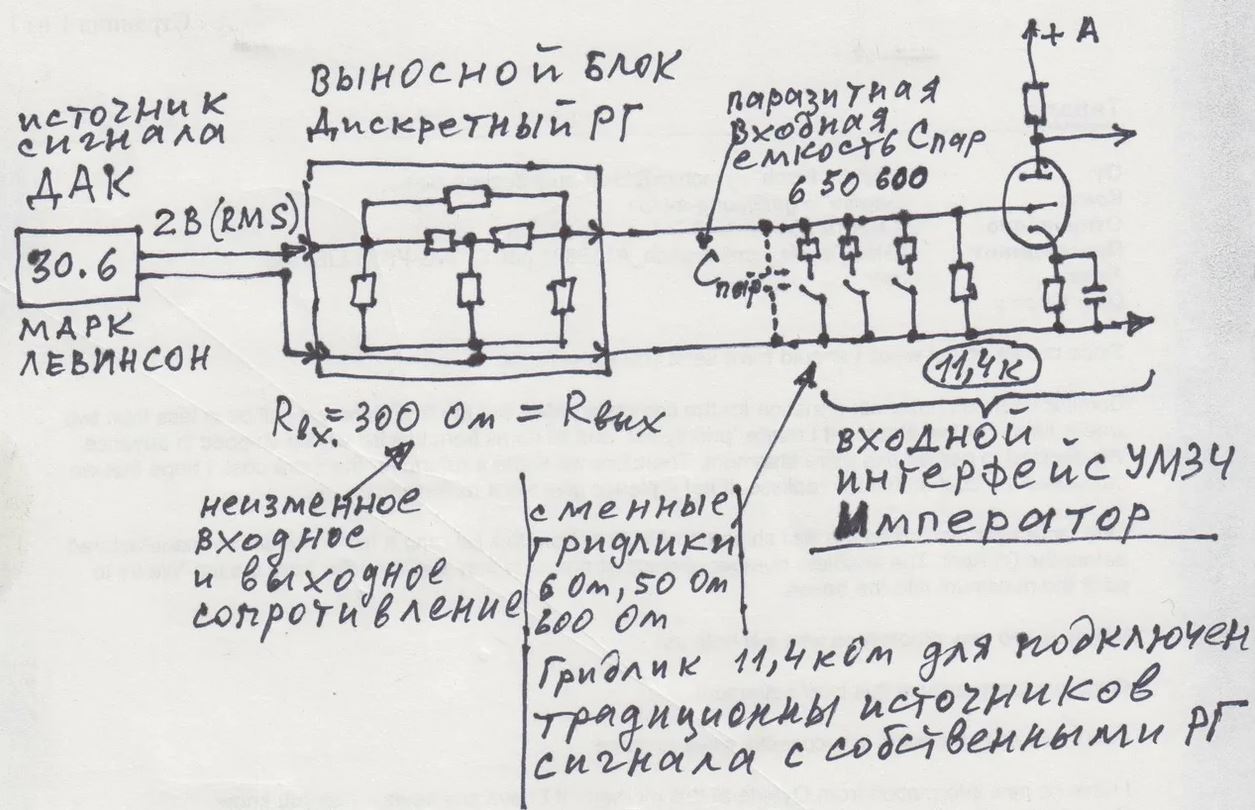 ИСТОЧНИК
СИГНАЛА
ДАК
30.6
МАРК
ЛЕВИНСОН
2В (RMS)
ВЫНОСНОЙ БЛОК
Дискретный РГ
Rвх. = 300 Ом = Rвых
неизменное
входное
и выходное
сопротивление
паразитная
входная
емкость Спар
6 50 600
Спар
+ А
11,4к
входной
интерфейс УМЗЧ
Император
сменные
гридлики
6 Ом, 50 Ом
600 Ом
Гридлик 11,4 кОм для подключен
традиционны источников
сигнала с собственными РГ